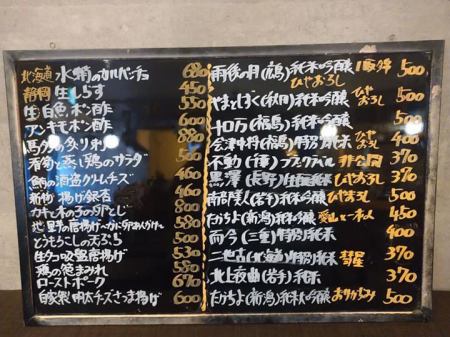 北海道 水蛸のカルパッチョ 680
静岡 生しらす 450
生白魚ポン酢 550
アンキモポン酢 600
馬タンの炙り刺 880
香旬と蒸し鶏のサラダ
鮪の酒盗クリームチーズ 460
新物 揚げ銀杏 460
カキと木の子の卵とじ 800
地里芋の唐揚げ〜かに汁あんかけ〜 580
とうもろこしの天ぷら 530
生タコの唐揚げ 550
鶏の 530
ローストポーク 670
自家製 明太チーズさつま揚げ 600
雨後の月(広島)純米吟醸 ひやおろし 500
やまとしずく(秋田)純米吟醸 ひやおろし 500
十ロ万(福島)純米吟醸 500
会津中将(福島)特別純米 ひやおろし 400
不動(千葉) 非公開 370
黒澤(長野)生酛純米 ひやおろし 370
南部美人(岩手)純米吟醸 ひやおろし 500
たかちよ(新潟)純米吟醸 450
而今(三重)特別純米 400
二世古(北海道)特別純米 彗星 370
北上夜曲(岩手)純米 370
たかちよ(新潟)純米吟醸 おりがらみ 500